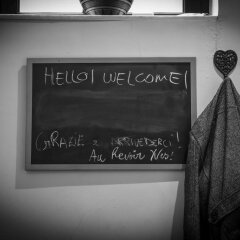 HELLO! WELCOME!
GRAZIE e ARRIVEDERCI!
Au Revoir